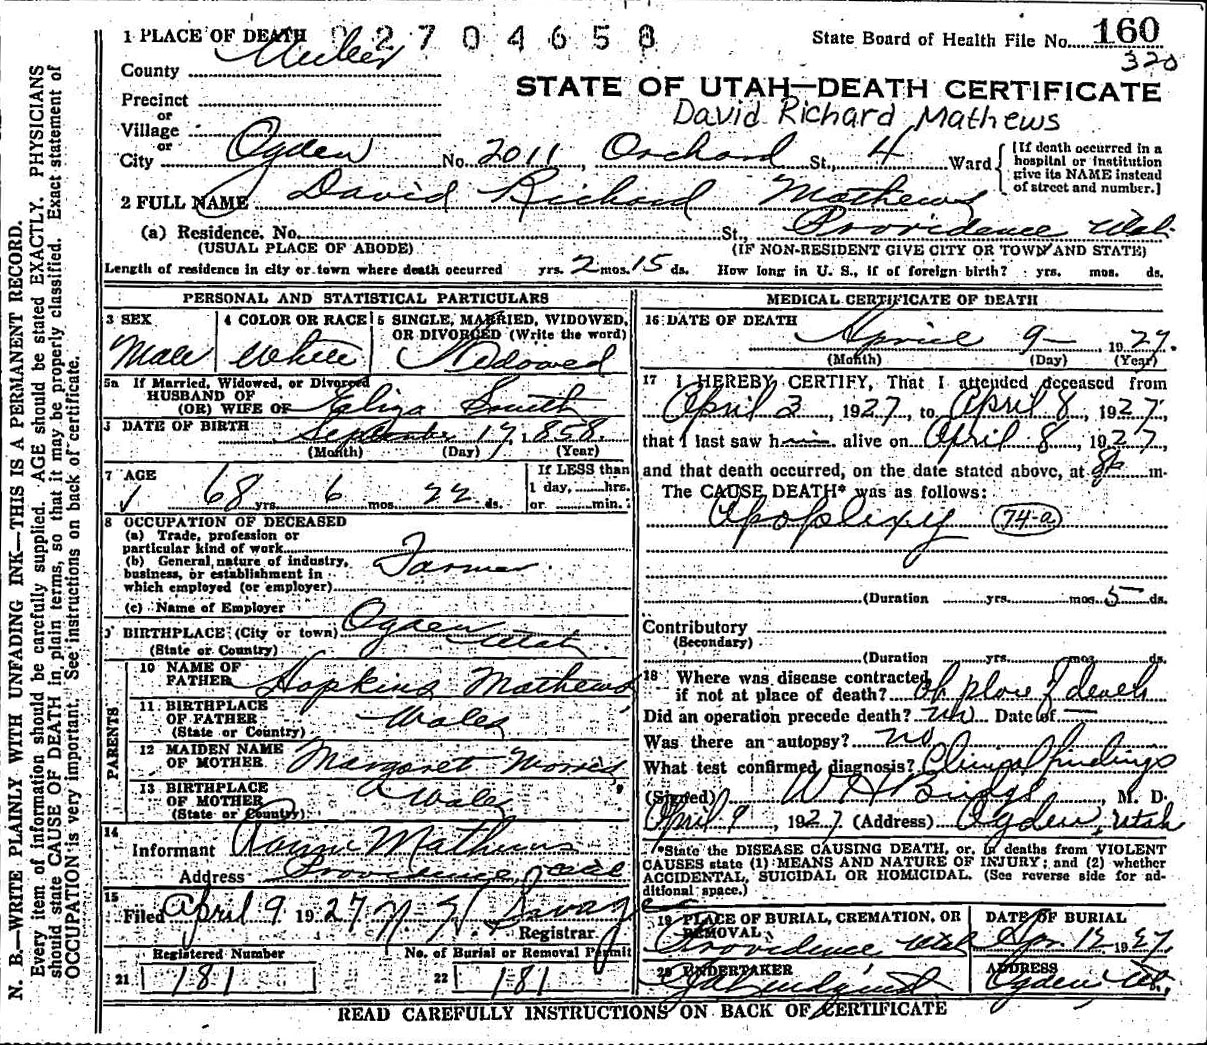 N. B.—WRITE PLAINLY WITH UNFADING INK—THIS IS A PERMANENT RECORD.
Every item of information should be carefully supplied. AGE should be stated EXACTLY. PHYSICIANS
should state CAUSE OF DEATH in plain terms, so that it may be properly classified. Exact statement of
OCCUPATION is very important. See instructions on back of certificate.
1 PLACE OF DEATH 02704658
State Board of Health File No. 160
320
County Weber
STATE OF UTAH—DEATH CERTIFICATE
Precinct
David Richard Mathews
or
Village
or
City Ogden No. 2011 Orchard St., 4 Ward
[If death occurred in a
hospital or institution
give its NAME instead
of street and number.]
2 FULL NAME David Richard Mathews
(a) Residence. No. St., Providence Utah
(USUAL PLACE OF ABODE) (IF NON-RESIDENT GIVE CITY OR TOWN AND STATE)
Length of residence in city or town where death occurred yrs. 2 mos. 15 ds. How long in U. S., if of foreign birth? yrs. mos. ds.
PERSONAL AND STATISTICAL PARTICULARS
3 SEX 4 COLOR OR RACE 5 SINGLE, MARRIED, WIDOWED,
OR DIVORCED (Write the word)
Male White Widowed
5a If Married, Widowed, or Divorced
HUSBAND OF
(OR) WIFE OF Eliza Smith
DATE OF BIRTH September 17, 1858
(Month) (Day) (Year)
7 AGE If LESS than
1 day, hrs.
68 yrs. 6 mos. 22 ds. or min.
8 OCCUPATION OF DECEASED
(a) Trade, profession or
particular kind of work
(b) General nature of industry,
business, or establishment in
which employed (or employer) Farmer
(c) Name of Employer
9 BIRTHPLACE (City or town) Ogden
(State or Country) Utah
PARENTS
10 NAME OF
FATHER Hopkins Mathews
11 BIRTHPLACE
OF FATHER Wales
(State or Country)
12 MAIDEN NAME
OF MOTHER Margaret Morris
13 BIRTHPLACE
OF MOTHER Wales
(State or Country)
14
Informant Mathews
Address Providence, Utah
15
Filed April 9 1927 Savage
Registrar.
Registered Number No. of Burial or Removal Permit
21 181 22 181
MEDICAL CERTIFICATE OF DEATH
16 DATE OF DEATH
April 9 1927.
(Month) (Day) (Year)
17 I HEREBY CERTIFY, That I attended deceased from
April 3, 1927, to April 8, 1927,
that I last saw him alive on April 8, 1927,
and that death occurred, on the date stated above, at m.
The CAUSE DEATH* was as follows:
Apoplexy 74-a
(Duration yrs. mos. 5 ds.
Contributory
(Secondary)
(Duration yrs. mos. ds.
18 Where was disease contracted
if not at place of death? At place of death
Did an operation precede death? no Date of —
Was there an autopsy? no
What test confirmed diagnosis? Clinical findings
(Signed) W H Budge, M. D.
April 9, 1927 (Address) Ogden, Utah
*State the DISEASE CAUSING DEATH, or, in deaths from VIOLENT
CAUSES state (1) MEANS AND NATURE OF INJURY; and (2) whether
ACCIDENTAL, SUICIDAL OR HOMICIDAL. (See reverse side for ad-
ditional space.)
19 PLACE OF BURIAL, CREMATION, OR DATE OF BURIAL
REMOVAL
Providence Utah Apr 12 1927
20 UNDERTAKER ADDRESS
Lindquist Ogden, Ut.
READ CAREFULLY INSTRUCTIONS ON BACK OF CERTIFICATE